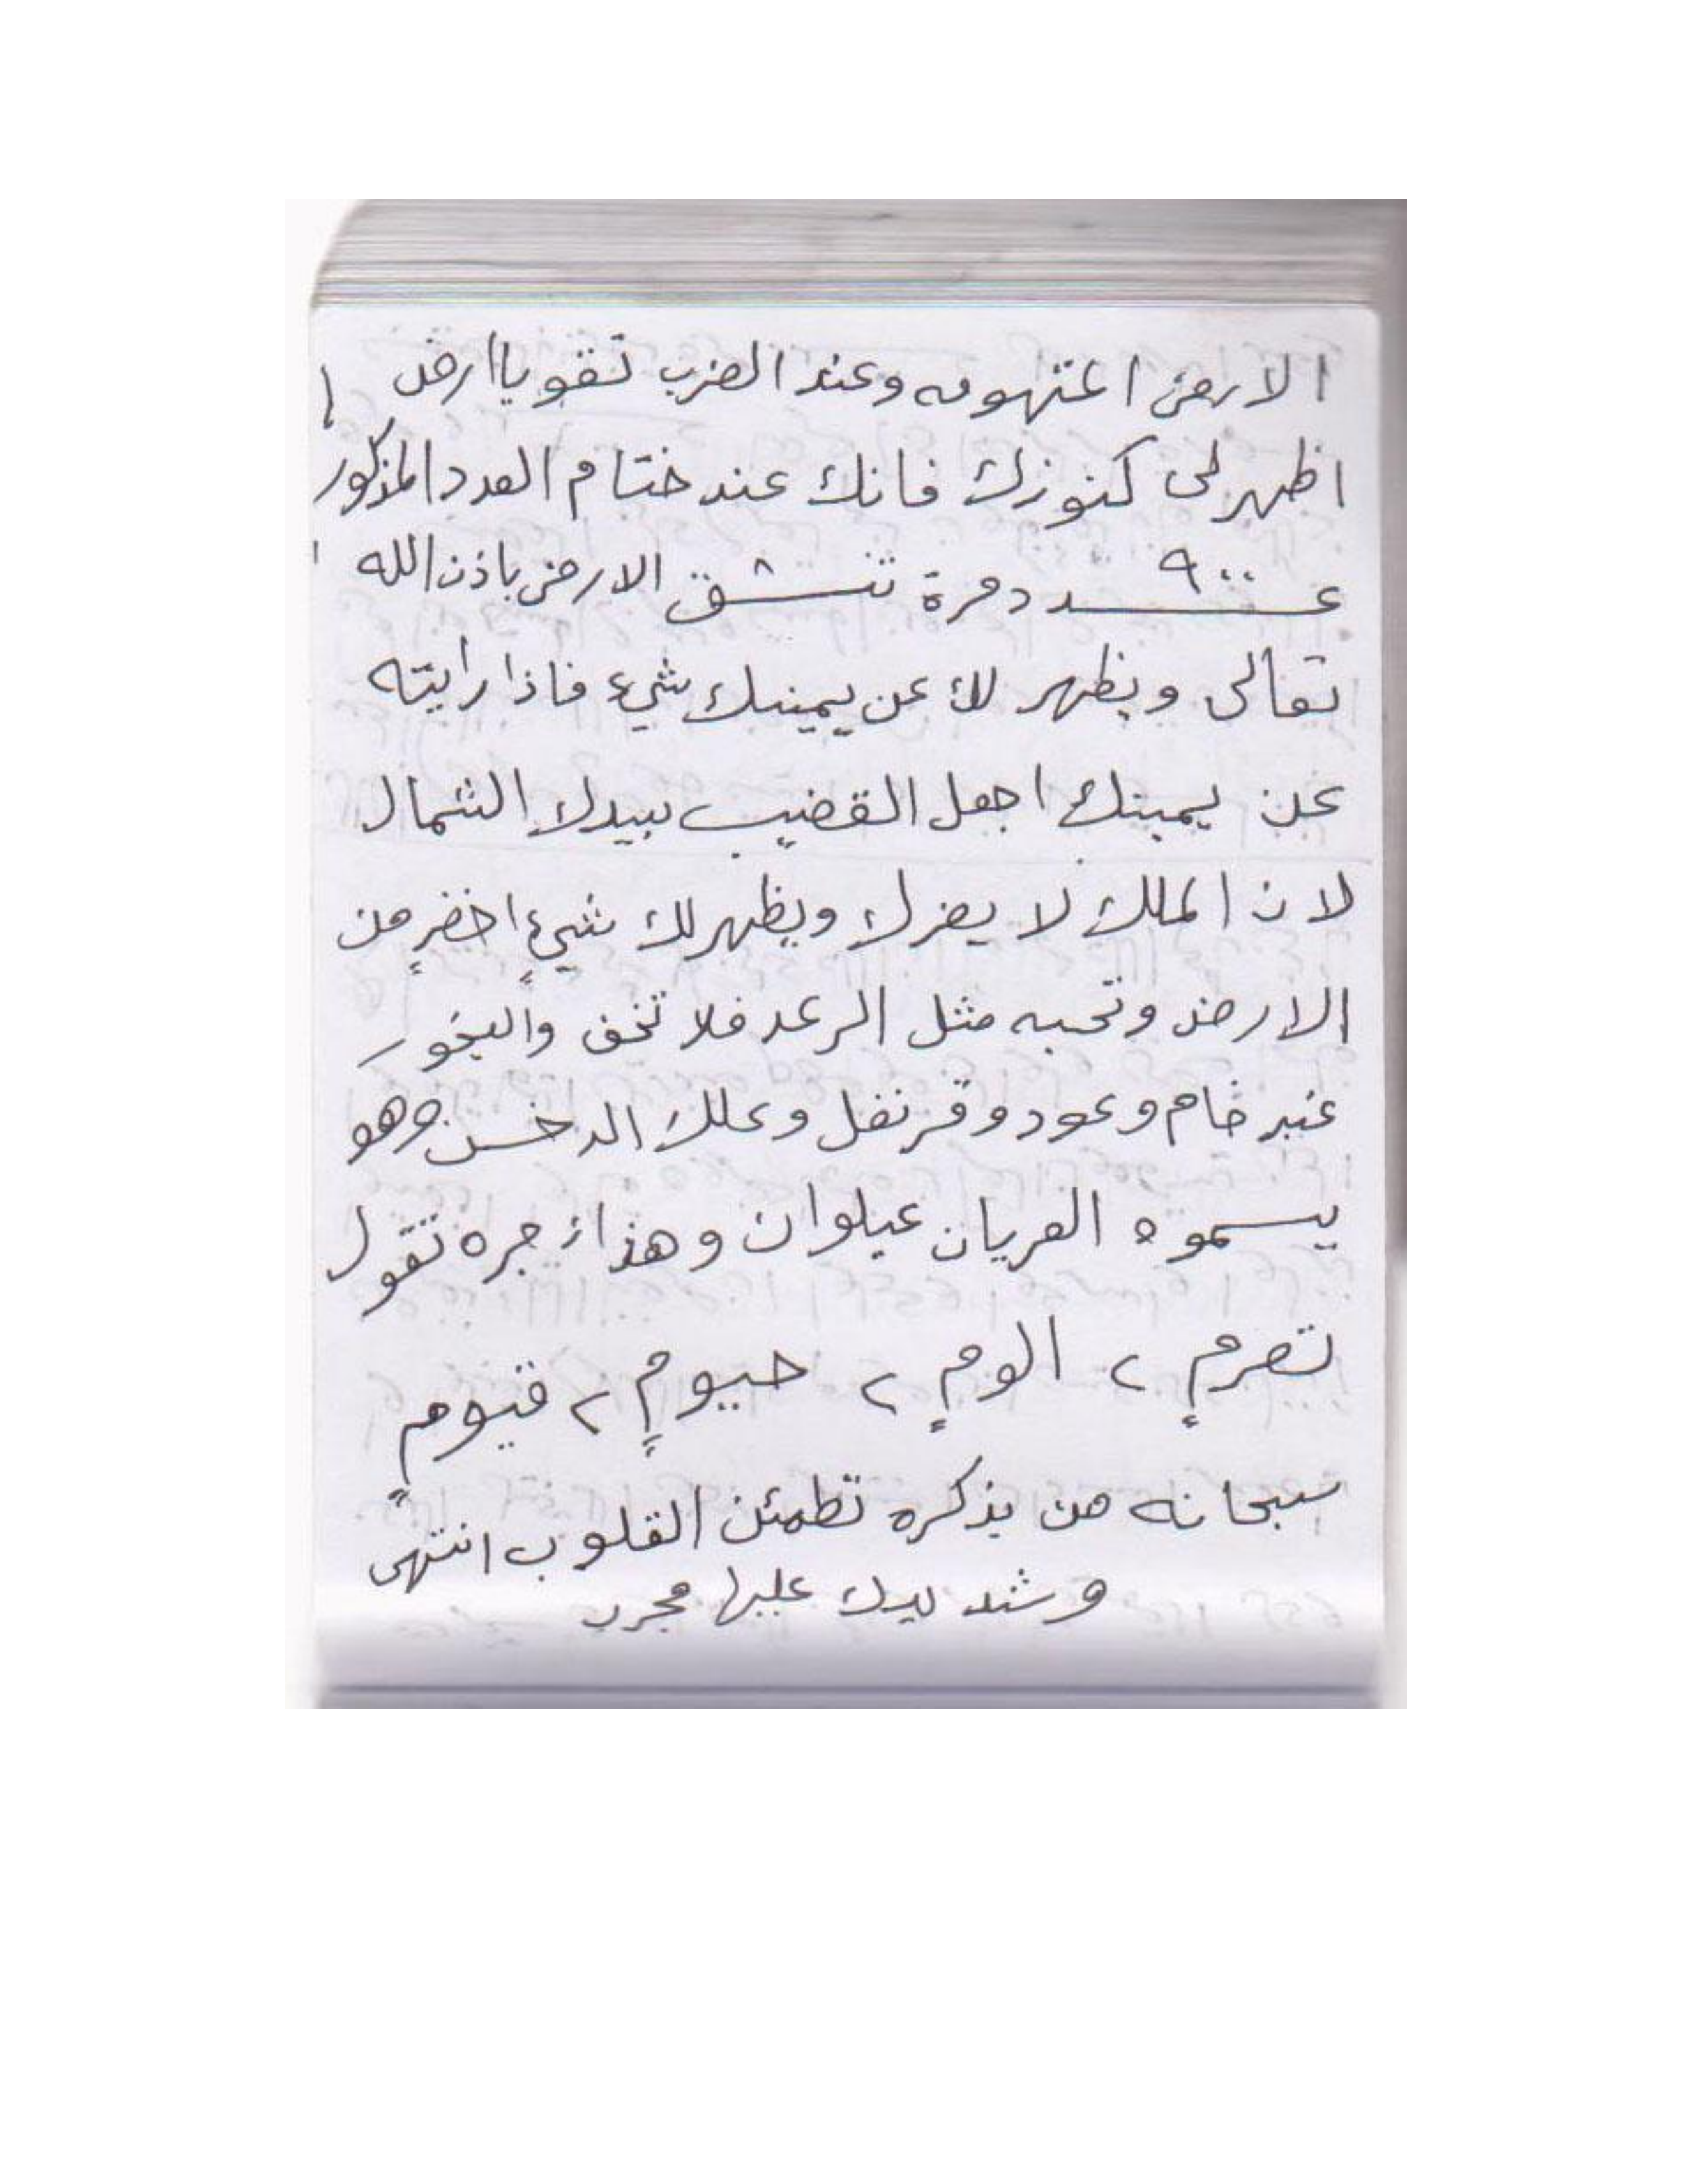 الارض المتهومه وعند الضرب تقو يا ارض
اظهر لى كنوزك فانك عند ختام العدد المذكور
عدد ٩٠٠ مرة تنشق الارض باذن الله
تعالى ويظهر لك عن يمينك شيء فاذا رايته
عن يمينك اجعل القضيب بيدك الشمال
لان الملك لا يضرك ويظهر لك شيءٍ اخضرٍ من
الارض وتحبه مثل الرعد فلا تخف والبخور
عنبر خام وعود وقرنفل وعلك الدخسن وهو
يسموه العربان عيلوان وهذا زجره تقول
تصرمٍ ، الومٍ ، حيومٍ ، قيومٍ
سبحانه من بذكره تطمئن القلوب انتهى
وشد يدك عليها مجرب